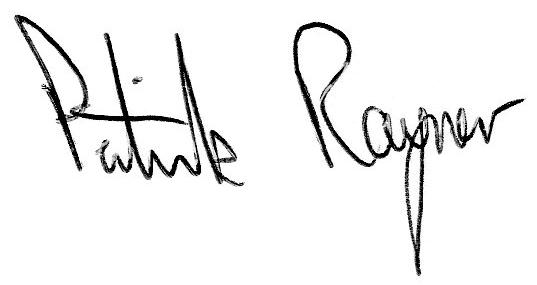 Patrick Rayner